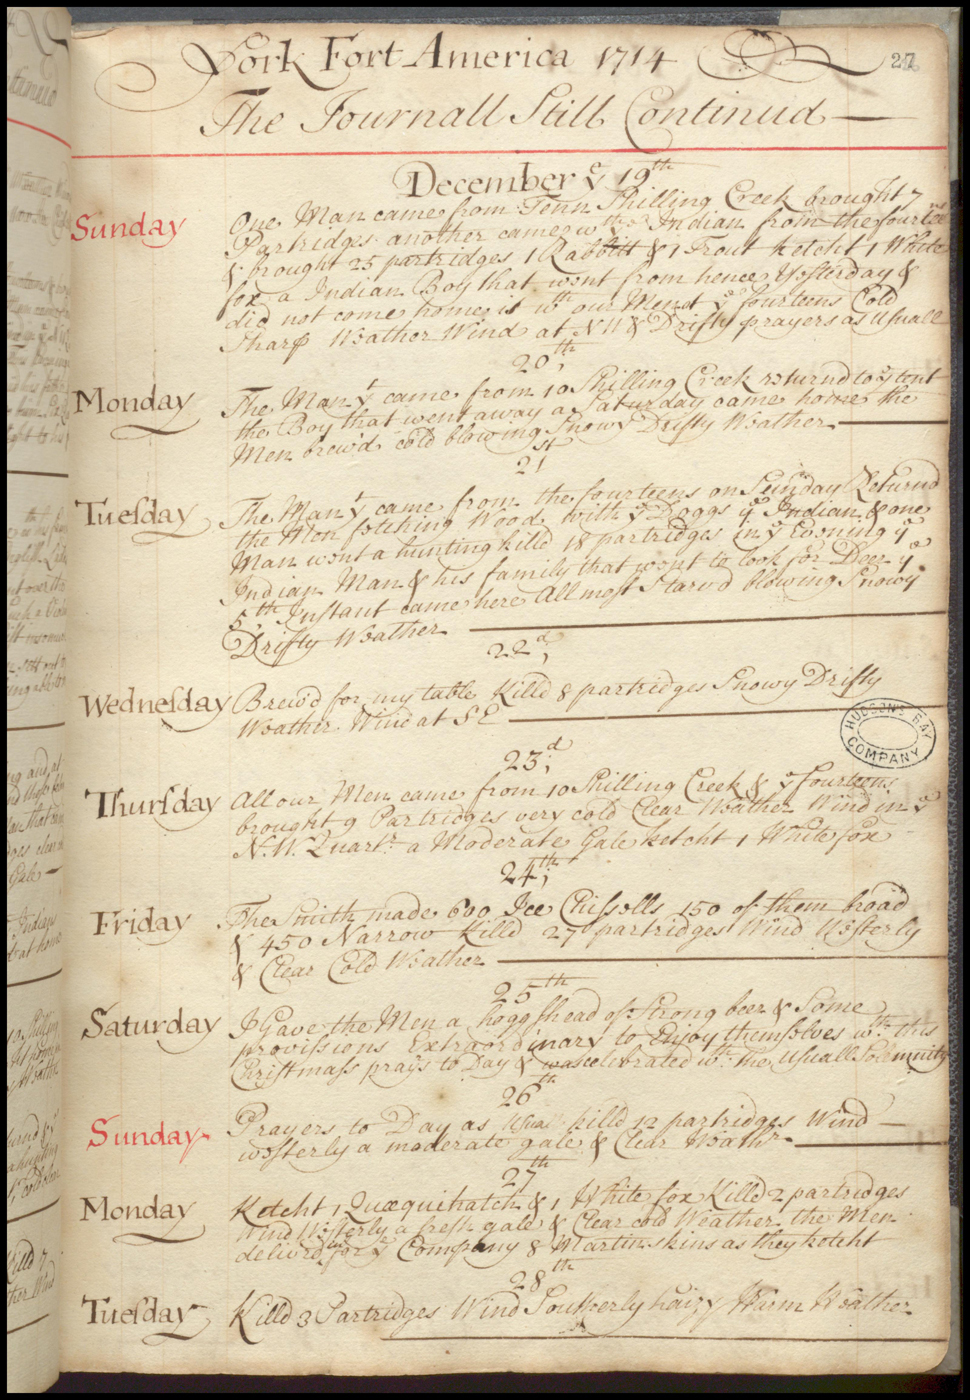 York Fort America 1714
27
The Journall Still Continud
December ye 19th
Sunday
One Man came from Tenn Shilling Creek brought 7
Partridges another came wth ye Indian from the fourteens
& brought 25 partridges 1 Rabbitt & 1 Trout ketcht 1 White
fox a Indian Boy that went from hence Yesterday &
did not come home is wth our Men at ye fourteens Cold
Sharp Weather Wind at NW & Drifty prayers as Usuall
20th,
Monday
The Man yt came from 10 Shilling Creek returnd to ye tent
the Boy that went away a Saturday came home the
Men brew'd cold blowing Snowy Drifty Weather
21st
Tuesday
The Man yt came from the fourteens on Sunday Returnd
the Men fetching Wood with ye Doggs ye Indian & one
Man went a hunting killd 18 partridges in ye Evening ye
Indian Man & his family that went to look for Deer ye
5th Instant came here All most Starv'd blowing Snowy
Drifty Weather
22d;
Wednesday
Brew'd for my table Killd 8 partridges Snowy Drifty
Weather Wind at SE
23d;
Thursday
All our Men came from 10 Shilling Creek & ye fourteens
brought 9 Partridges very cold Clear Weather Wind in ye
N.W. Quartr a Moderate Gale ketcht 1 White fox
24th;
Friday
The Smith made 600 Ice Chissells 150 of them broad
& 450 Narrow Killd 27 partridges Wind Westerly
& Clear Cold Weather
25th
Saturday
I Gave the Men a hoggshead of Strong beer & Some
provissions Extraordinary to Enjoy themselves wth this
Christmass prays to Day & was celebrated wth the Usuall Solemnity
26th
Sunday
Prayers to Day as Usual killd 12 partridges Wind
westerly a moderate gale & Clear Weathr
27th
Monday
Ketcht 1 Quæquihatch & 1 White fox Killd 2 partridges
Wind Westerly a fresh gale & Clear cold Weather the Men
deliverd me for ye Company 8 Martin skins as they ketcht
28th
Tuesday
Killd 3 Partridges Wind Southerly haizy Warm Weather
HUDSON'S BAY
COMPANY